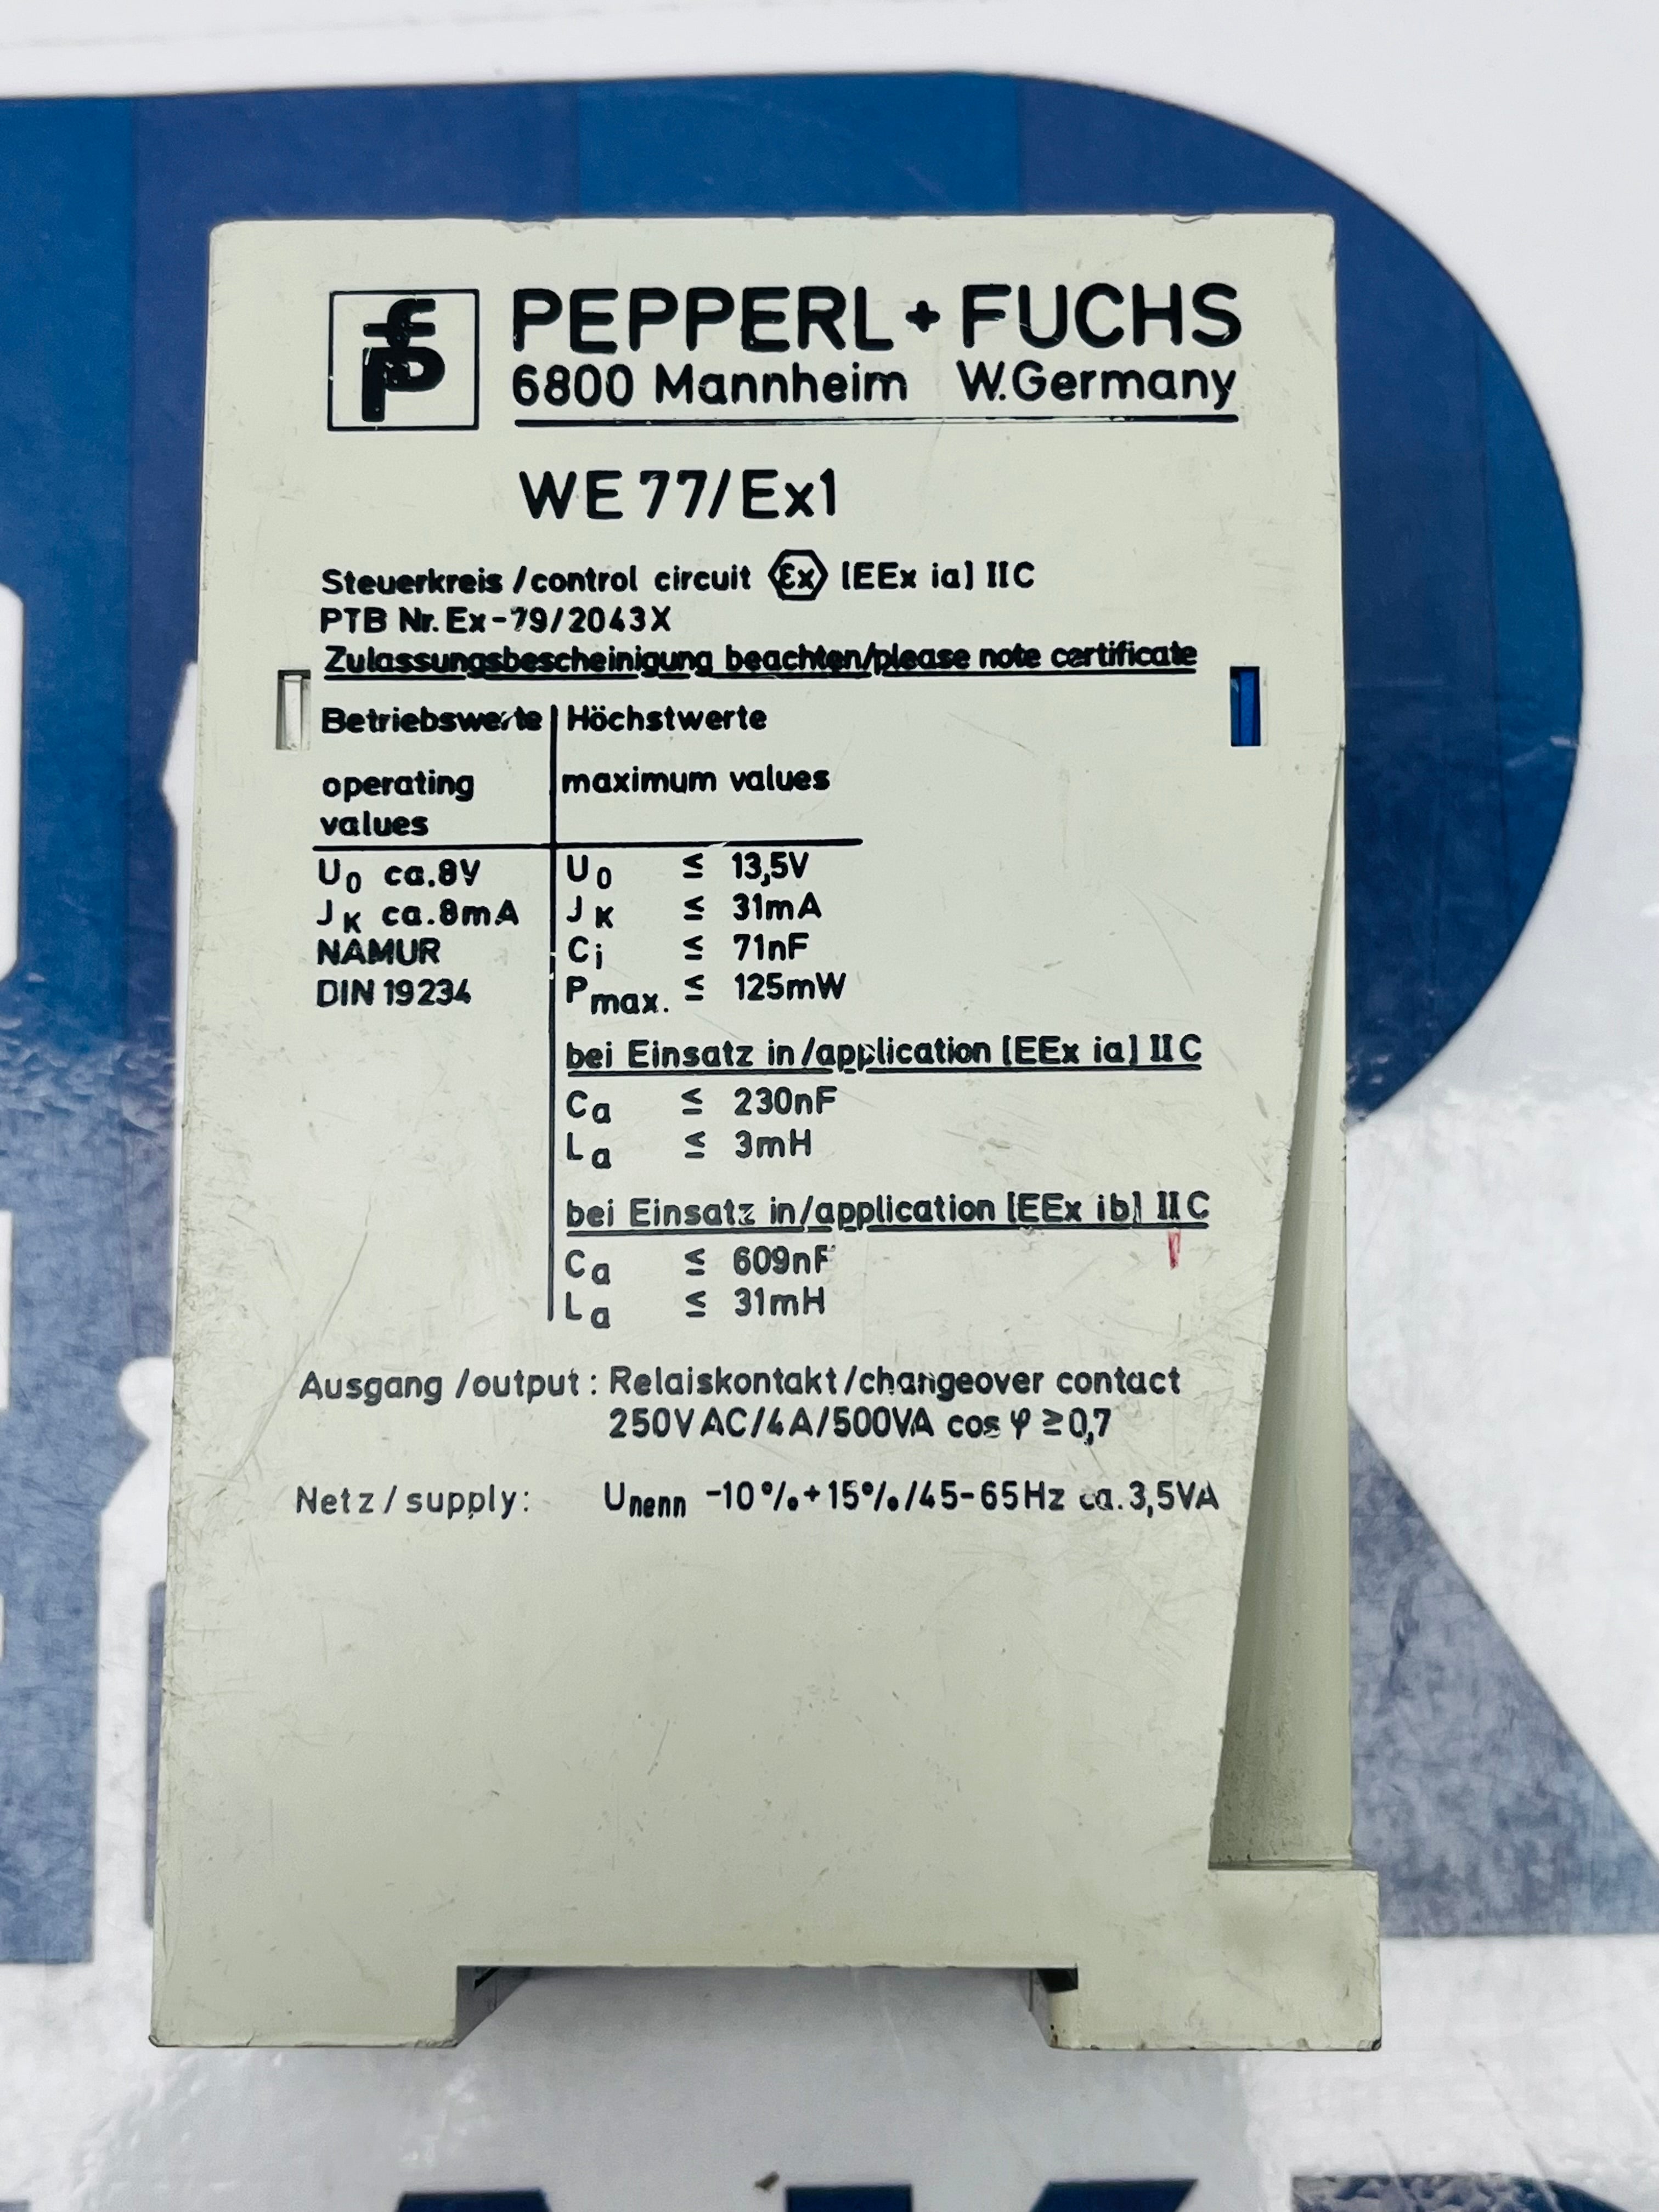 PEPPERL + FUCHS
6800 Mannheim W.Germany
WE 77/Ex1
Steuerkreis /control circuit Ex [EEx ia] IIC
PTB Nr. Ex-79/2043X
Zulassungsbescheinigung beachten/please note certificate
Betriebswerte Höchstwerte
operating values maximum values
U0 ca.8V U0 ≤ 13,5V
JK ca.8mA JK ≤ 31mA
NAMUR Ci ≤ 71nF
DIN 19234 Pmax. ≤ 125mW
bei Einsatz in/application [EEx ia] IIC
Ca ≤ 230nF
La ≤ 3mH
bei Einsatz in/application [EEx ib] IIC
Ca ≤ 609nF
La ≤ 31mH
Ausgang /output: Relaiskontakt/changeover contact
250V AC/4A/500VA cos φ ≥ 0,7
Netz/supply: Unenn -10%+15%/45-65Hz ca. 3,5VA